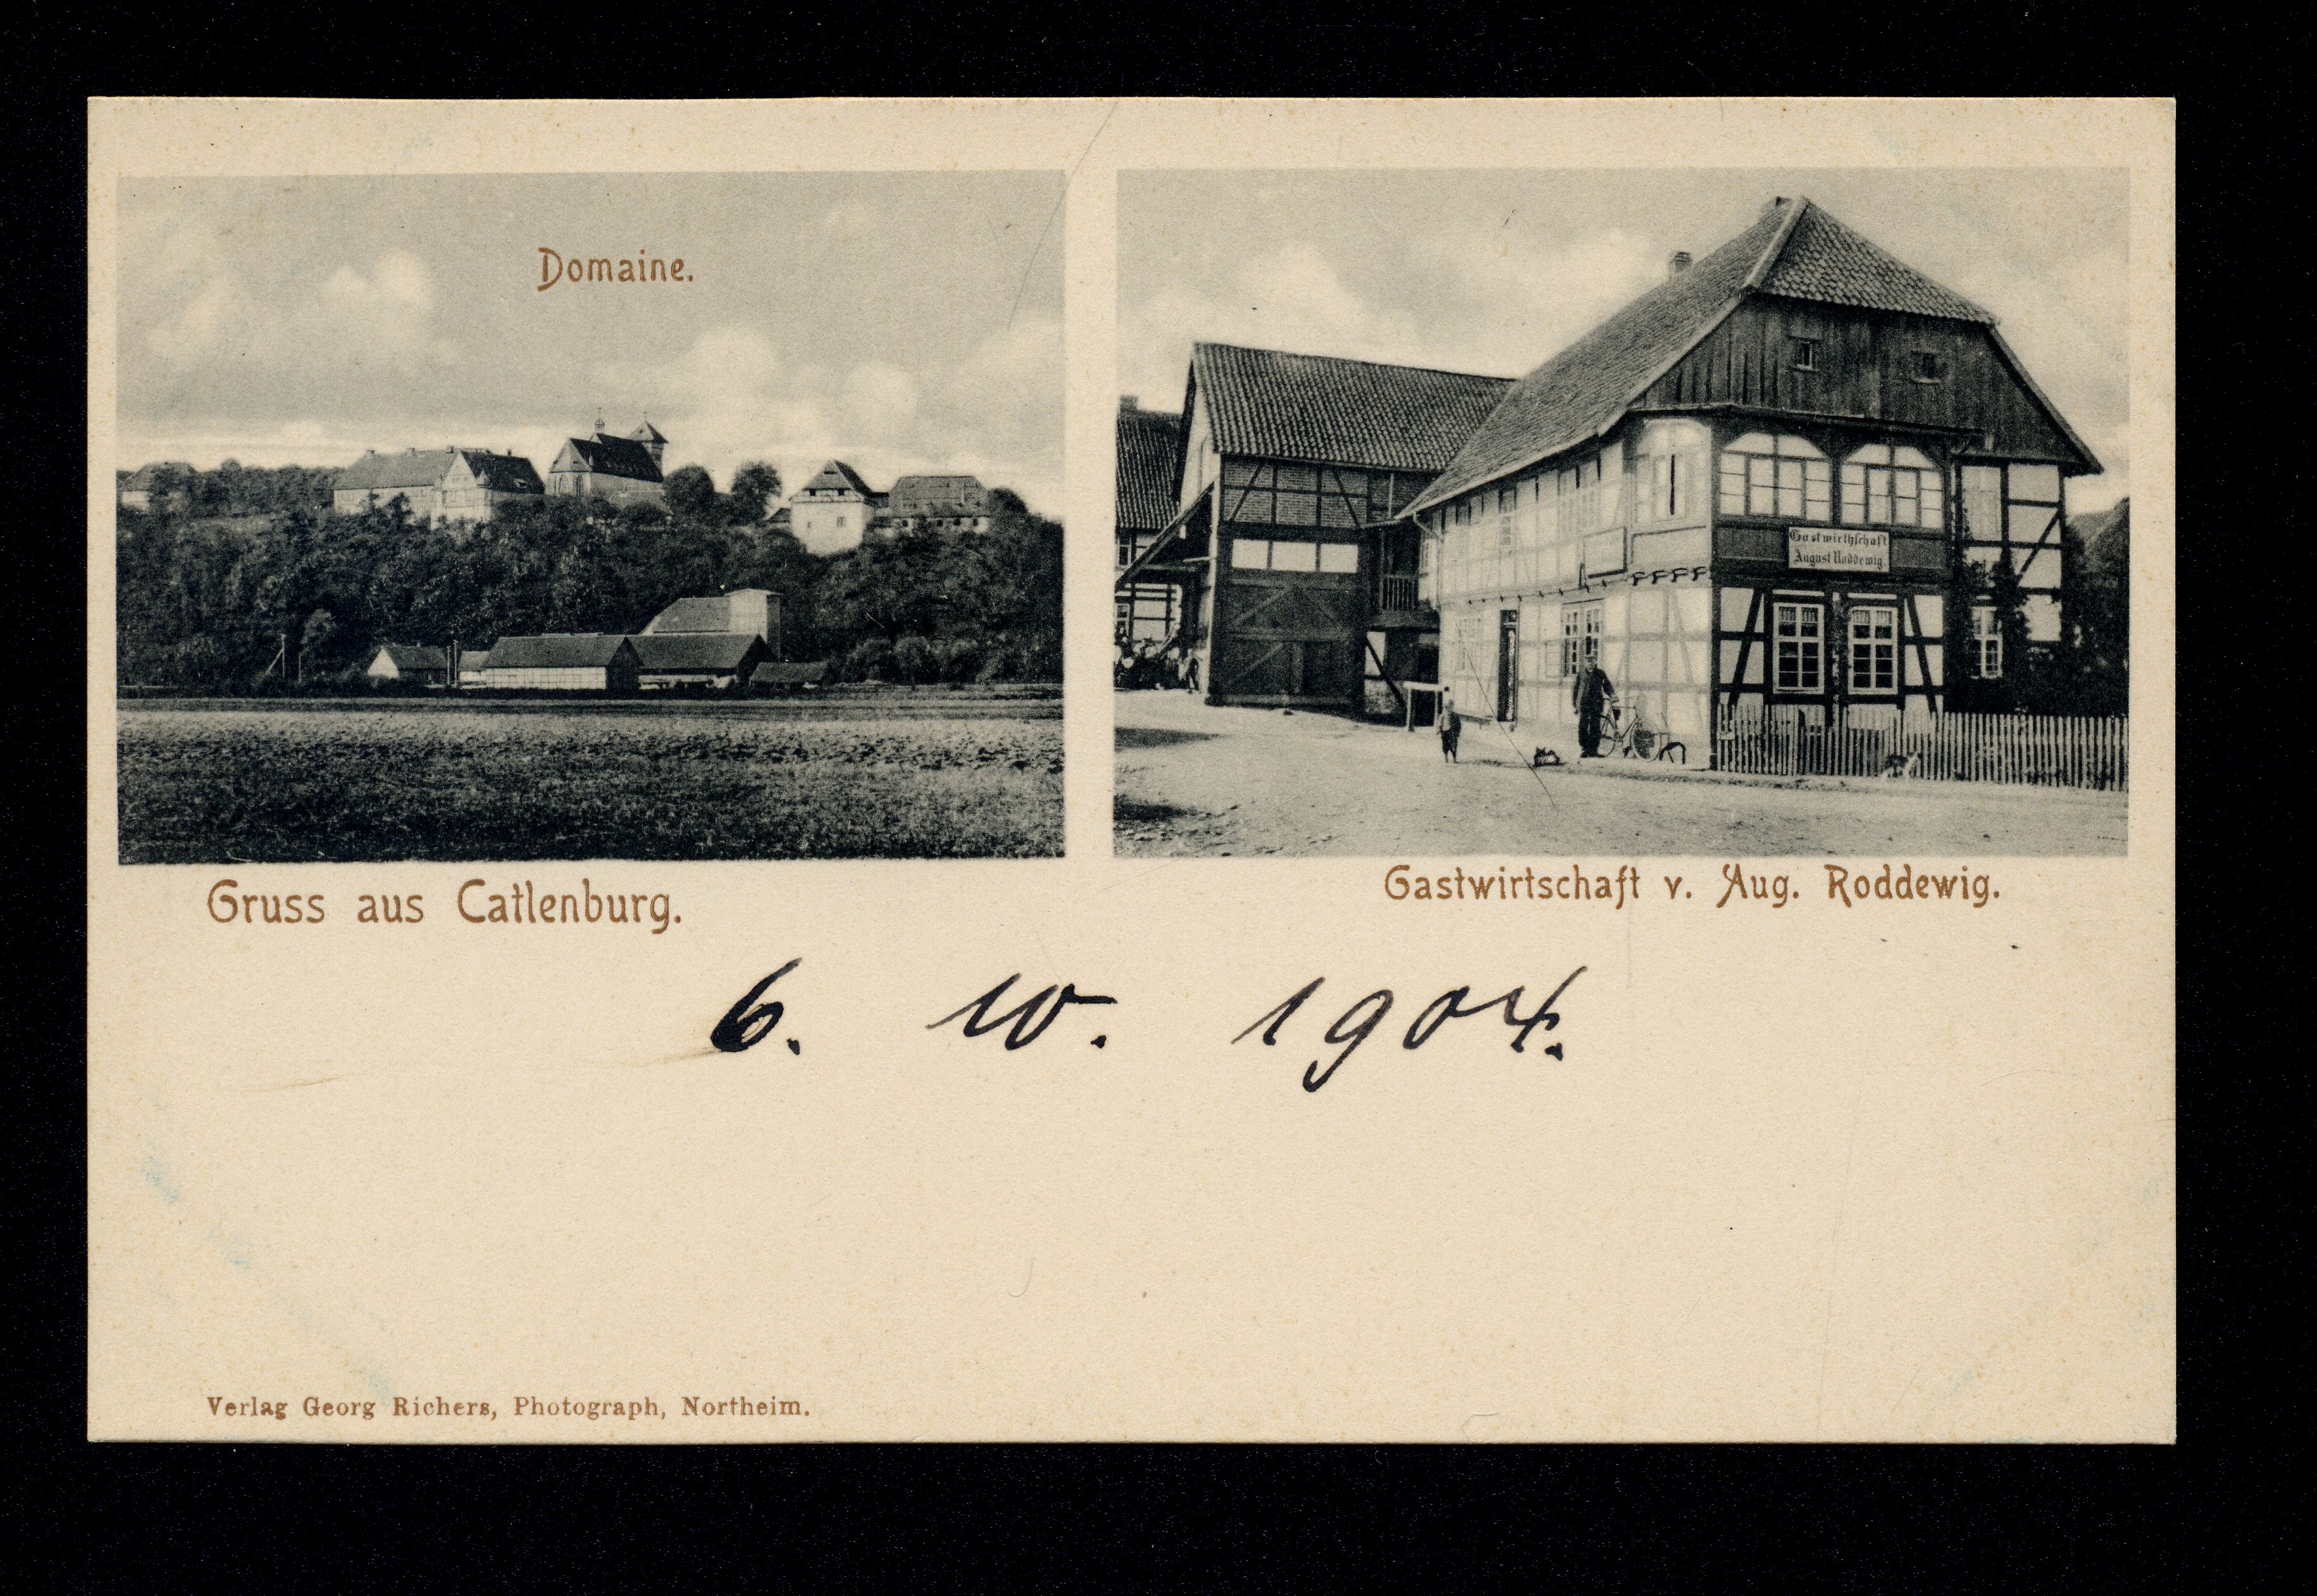 Domaine.
Gastwirthschaft
August Roddewig.
Gruss aus Catlenburg.
Gastwirtschaft v. Aug. Roddewig.
6. 10. 1904.
Verlag Georg Richers, Photograph, Northeim.